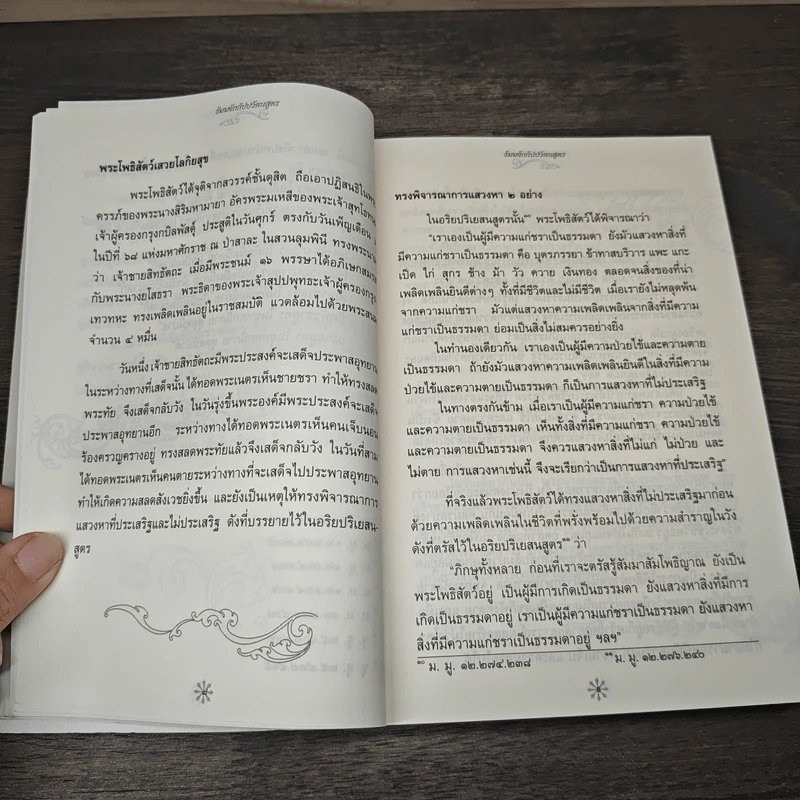 ธัมมจักกัปปวัตนสูตร
พระโพธิสัตว์เสวยโลกิยสุข
พระโพธิสัตว์ได้จุติจากสวรรค์ชั้นดุสิต ถือเอาปฏิสนธิในพระ
ครรภ์ของพระนางสิริมหามายา อัครพระมเหสีของพระเจ้าสุทโธทนะ
เจ้าผู้ครองกรุงกบิลพัสดุ์ ประสูติในวันศุกร์ ตรงกับวันเพ็ญเดือน
ในปีที่ ๖๘ แห่งมหาศักราช ณ ป่าสาละ ในสวนลุมพินี ทรงพระนาม
ว่า เจ้าชายสิทธัตถะ เมื่อมีพระชนม์ ๑๖ พรรษาได้อภิเษกสมรส
กับพระนางยโสธรา พระธิดาของพระเจ้าสุปปพุทธะเจ้าผู้ครองกรุง
เทวทหะ ทรงเพลิดเพลินอยู่ในราชสมบัติ แวดล้อมไปด้วยพระสนม
จำนวน ๔ หมื่น
วันหนึ่ง เจ้าชายสิทธัตถะมีพระประสงค์จะเสด็จประพาสอุทยาน
ในระหว่างทางที่เสด็จนั้น ได้ทอดพระเนตรเห็นชายชรา ทำให้ทรงสลด
พระทัย จึงเสด็จกลับวัง ในวันรุ่งขึ้นพระองค์มีพระประสงค์จะเสด็จ
ประพาสอุทยานอีก ระหว่างทางได้ทอดพระเนตรเห็นคนเจ็บนอน
ร้องครวญครางอยู่ ทรงสลดพระทัยแล้วจึงเสด็จกลับวัง ในวันที่สาม
ได้ทอดพระเนตรเห็นคนตายระหว่างทางที่จะเสด็จไปประพาสอุทยาน
ทำให้เกิดความสลดสังเวชยิ่งขึ้น และยังเป็นเหตุให้ทรงพิจารณาการ
แสวงหาที่ประเสริฐและไม่ประเสริฐ ดังที่บรรยายไว้ในอริยปริเยสน-
สูตร
ธัมมจักกัปปวัตนสูตร
ทรงพิจารณาการแสวงหา ๒ อย่าง
ในอริยปริเยสนสูตรนั้น๑๐ พระโพธิสัตว์ได้พิจารณาว่า
"เราเองเป็นผู้มีความแก่ชราเป็นธรรมดา ยังมัวแสวงหาสิ่งที่
มีความแก่ชราเป็นธรรมดา คือ บุตรภรรยา ข้าทาสบริวาร แพะ แกะ
เป็ด ไก่ สุกร ช้าง ม้า วัว ควาย เงินทอง ตลอดจนสิ่งของที่น่า
เพลิดเพลินยินดีต่างๆ ทั้งที่มีชีวิตและไม่มีชีวิต เมื่อเรายังไม่หลุดพ้น
จากความแก่ชรา มัวแต่แสวงหาความเพลิดเพลินจากสิ่งที่มีความ
แก่ชราเป็นธรรมดา ย่อมเป็นสิ่งไม่สมควรอย่างยิ่ง
ในทำนองเดียวกัน เราเองเป็นผู้มีความป่วยไข้และความตาย
เป็นธรรมดา ถ้ายังมัวแสวงหาความเพลิดเพลินยินดีในสิ่งที่มีความ
ป่วยไข้และความตายเป็นธรรมดา ก็เป็นการแสวงหาที่ไม่ประเสริฐ
ในทางตรงกันข้าม เมื่อเราเป็นผู้มีความแก่ชรา ความป่วยไข้
และความตายเป็นธรรมดา เห็นทั้งสิ่งที่มีความแก่ชรา ความป่วยไข้
และความตายเป็นธรรมดา จึงควรแสวงหาสิ่งที่ไม่แก่ ไม่ป่วย และ
ไม่ตาย การแสวงหาเช่นนี้ จึงจะเรียกว่าเป็นการแสวงหาที่ประเสริฐ"
ที่จริงแล้วพระโพธิสัตว์ได้ทรงแสวงหาสิ่งที่ไม่ประเสริฐมาก่อน
ด้วยความเพลิดเพลินในชีวิตที่พรั่งพร้อมไปด้วยความสำราญในวัง
ดังที่ตรัสไว้ในอริยปริเยสนสูตร๑๑ ว่า
"ภิกษุทั้งหลาย ก่อนที่เราจะตรัสรู้สัมมาสัมโพธิญาณ ยังเป็น
พระโพธิสัตว์อยู่ เป็นผู้มีการเกิดเป็นธรรมดา ยังแสวงหาสิ่งที่มีการ
เกิดเป็นธรรมดาอยู่ เราเป็นผู้มีความแก่ชราเป็นธรรมดา ยังแสวงหา
สิ่งที่มีความแก่ชราเป็นธรรมดาอยู่ ฯลฯ"
๑๐ ม. มู. ๑๒.๒๗๔.๒๓๘ ๑๑ ม. มู. ๑๒.๒๗๖.๒๔๐